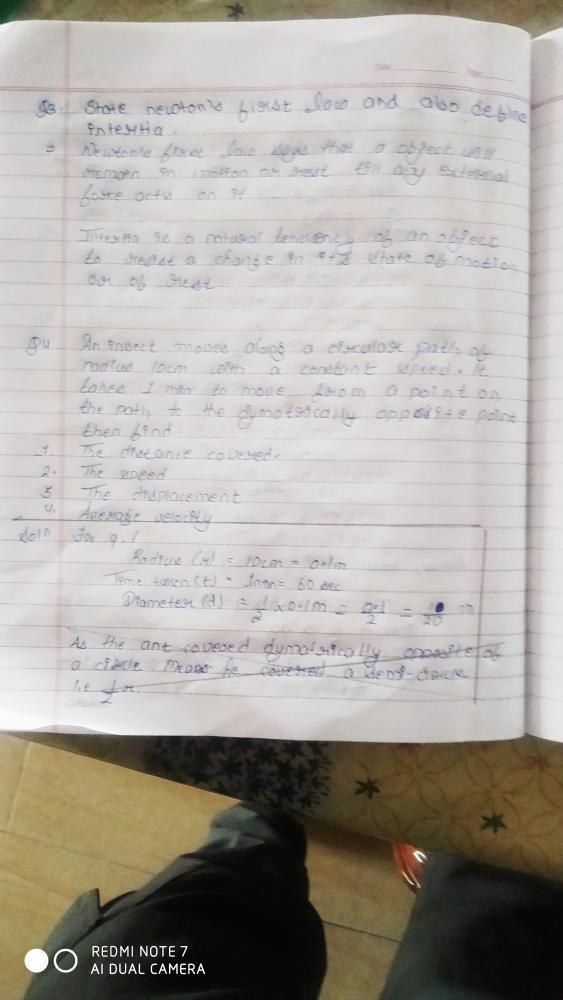 Date Page
Q3. State newton's first law and also define
intertia.
Newton's first law says that a object will
remain in motion or rest till any external
force acts on it
Intertia is a natural tendency of an object
to resist a change in its state of motion
or of rest
Q4. An insect moves along a circular path of
radius 10cm with a constant speed. It
takes 1 min to move from a point on
the path to the dymatrically opposite point
then find.
1. The distance covered.
2. The speed
3. The displacement
4. Average velocity
Soln For q.1
Radius (r) = 10cm = 0.1m
Time taken (t) = 1min = 60 sec
Diameter (d) = 1/2 x 0.1m = 0.1/2 = 10/20 m
As the ant covered dymatrically opposite of
a circle means he covered a semi-circle
i.e 1/2 r.
REDMI NOTE 7
AI DUAL CAMERA